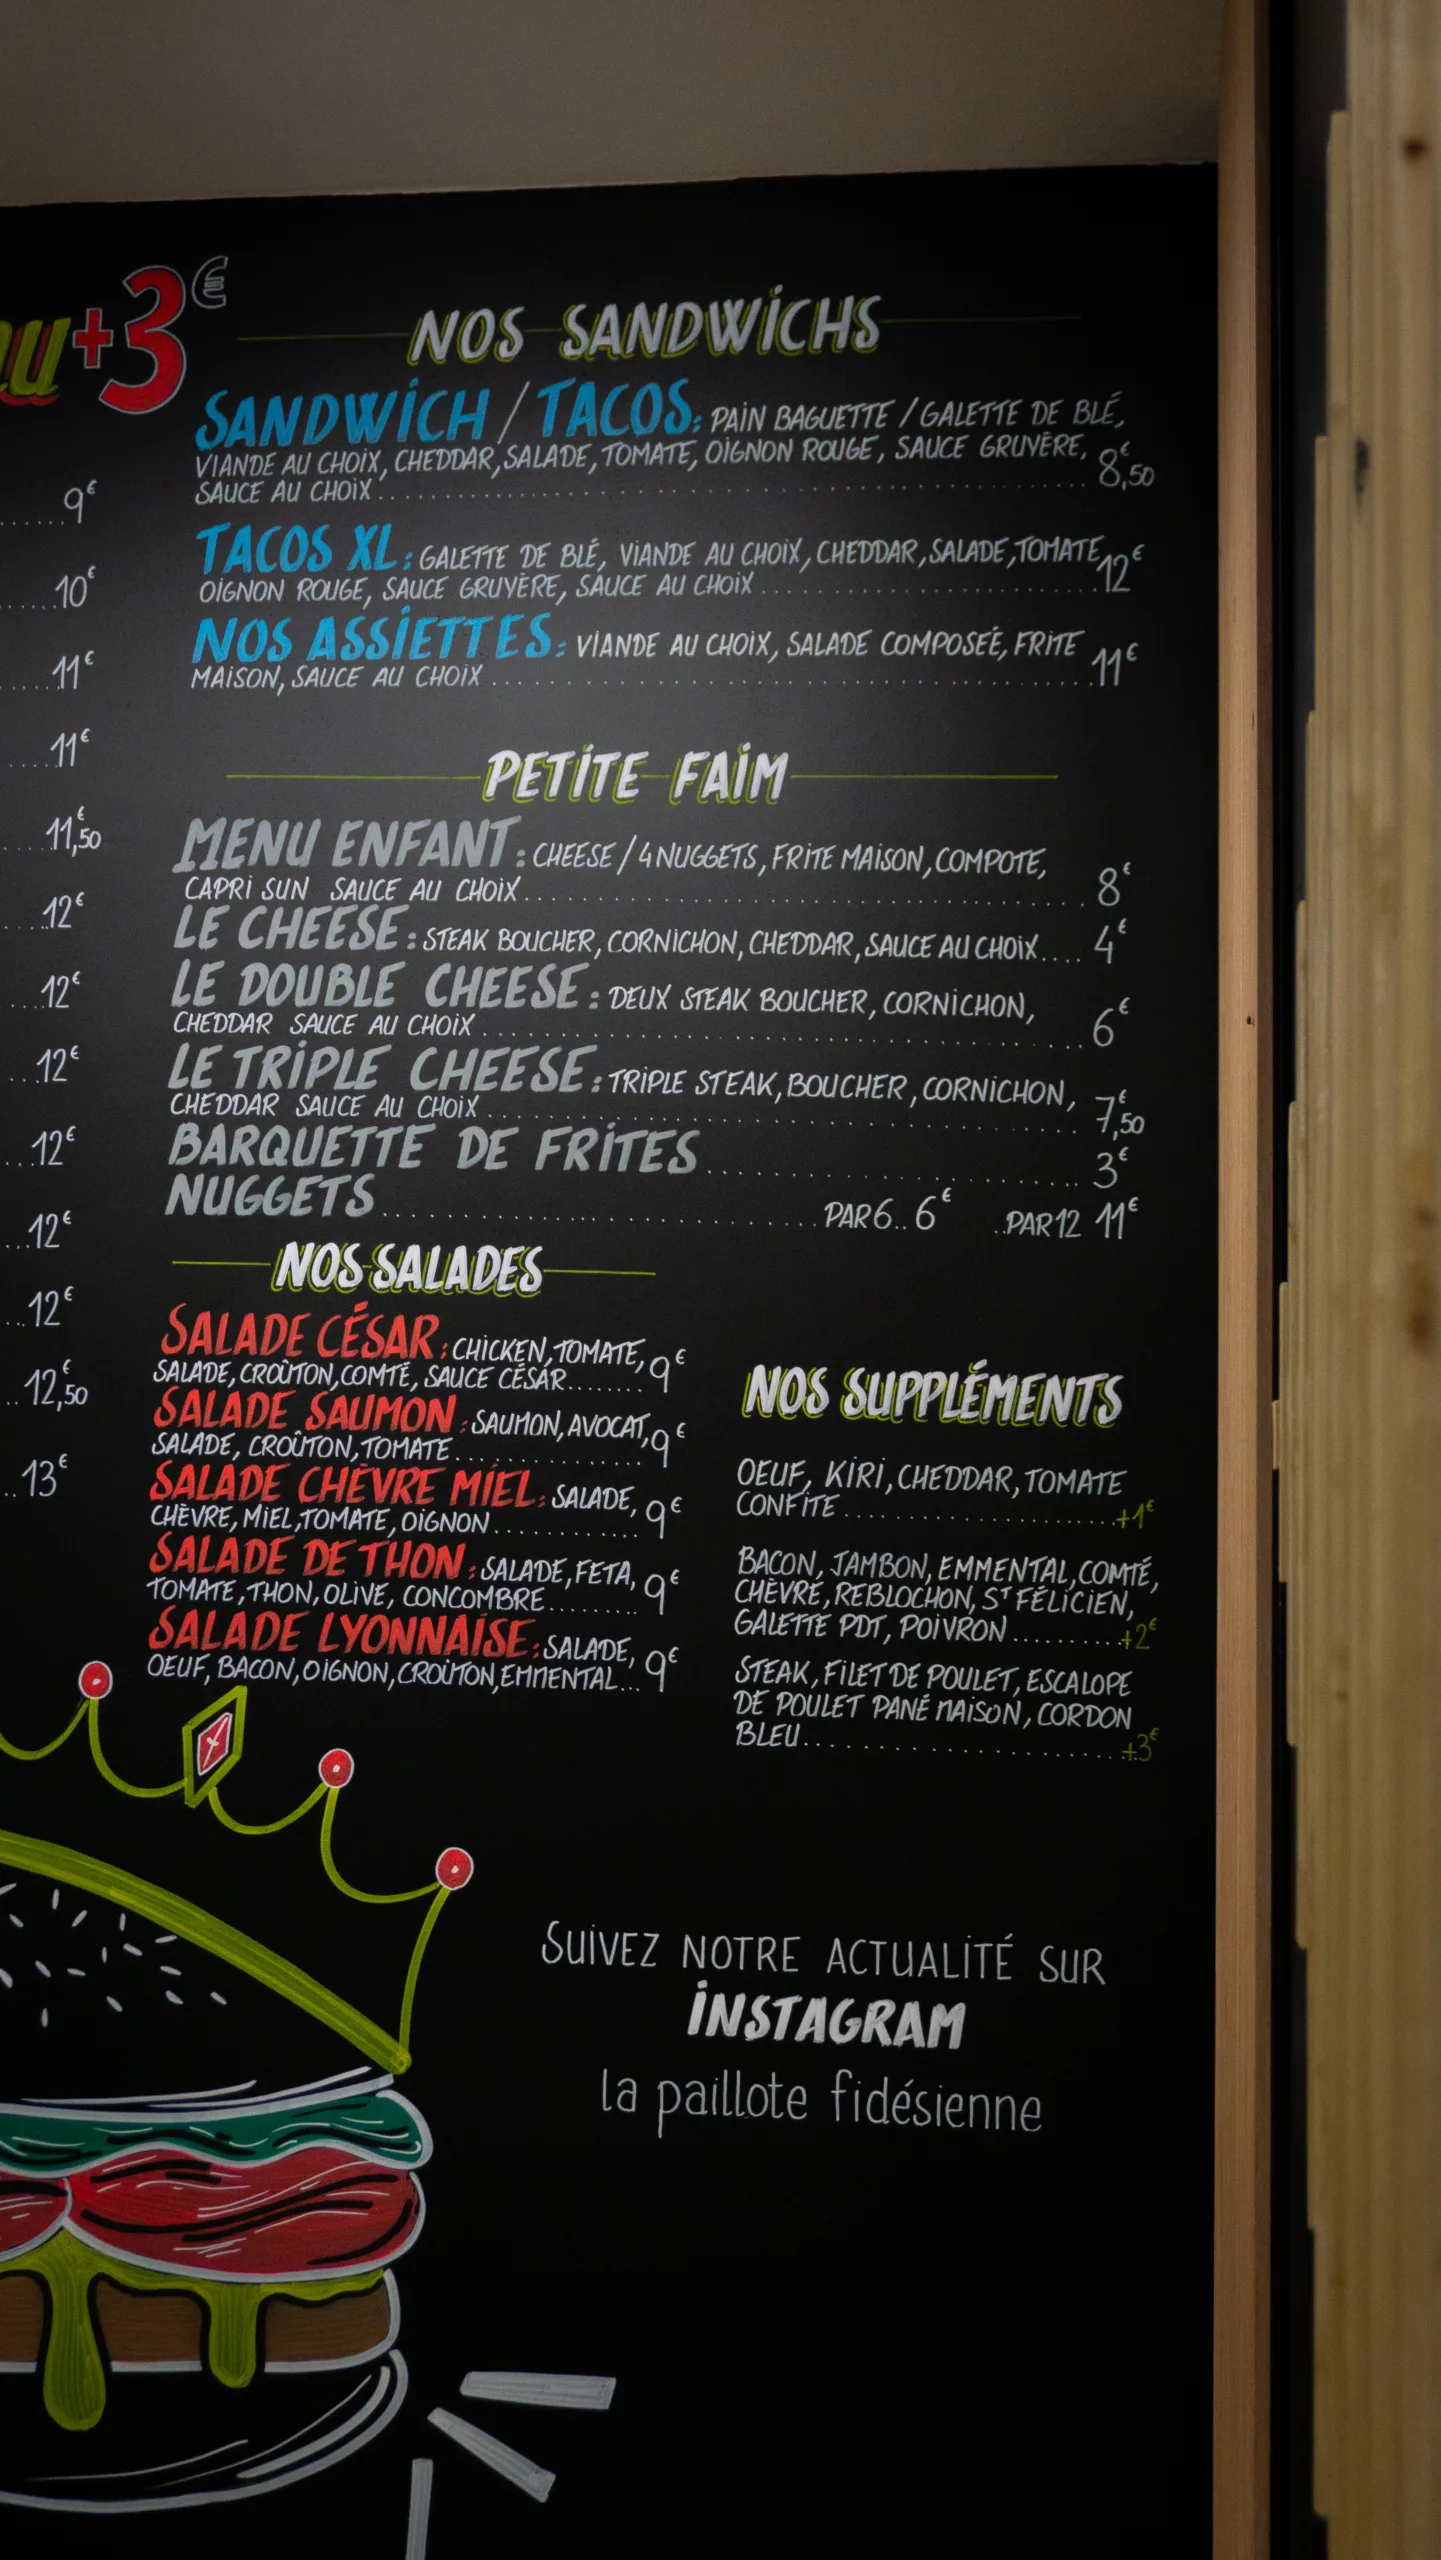 +3€
9€
10€
11€
11€
11,50€
12€
12€
12€
12€
12€
12€
12,50€
13€
NOS SANDWICHS
SANDWICH / TACOS: PAIN BAGUETTE / GALETTE DE BLÉ,
VIANDE AU CHOIX, CHEDDAR, SALADE, TOMATE, OIGNON ROUGE, SAUCE GRUYÈRE,
SAUCE AU CHOIX 8,50€
TACOS XL: GALETTE DE BLÉ, VIANDE AU CHOIX, CHEDDAR, SALADE, TOMATE,
OIGNON ROUGE, SAUCE GRUYÈRE, SAUCE AU CHOIX 12€
NOS ASSIETTES: VIANDE AU CHOIX, SALADE COMPOSÉE, FRITE
MAISON, SAUCE AU CHOIX 11€
PETITE FAIM
MENU ENFANT: CHEESE / 4 NUGGETS, FRITE MAISON, COMPOTE,
CAPRI SUN SAUCE AU CHOIX 8€
LE CHEESE: STEAK BOUCHER, CORNICHON, CHEDDAR, SAUCE AU CHOIX.... 4€
LE DOUBLE CHEESE: DEUX STEAK BOUCHER, CORNICHON,
CHEDDAR SAUCE AU CHOIX 6€
LE TRIPLE CHEESE: TRIPLE STEAK, BOUCHER, CORNICHON,
CHEDDAR SAUCE AU CHOIX 7,50€
BARQUETTE DE FRITES 3€
NUGGETS PAR 6.. 6€ ..PAR 12 11€
NOS SALADES
SALADE CÉSAR: CHICKEN, TOMATE,
SALADE, CROÛTON, COMTÉ, SAUCE CÉSAR 9€
SALADE SAUMON: SAUMON, AVOCAT,
SALADE, CROÛTON, TOMATE 9€
SALADE CHÈVRE MIEL: SALADE,
CHÈVRE, MIEL, TOMATE, OIGNON 9€
SALADE DE THON: SALADE, FETA,
TOMATE, THON, OLIVE, CONCOMBRE 9€
SALADE LYONNAISE: SALADE,
OEUF, BACON, OIGNON, CROÛTON, EMMENTAL... 9€
NOS SUPPLÉMENTS
OEUF, KIRI, CHEDDAR, TOMATE
CONFITE +1€
BACON, JAMBON, EMMENTAL, COMTÉ,
CHÈVRE, REBLOCHON, ST FÉLICIEN,
GALETTE PDT, POIVRON +2€
STEAK, FILET DE POULET, ESCALOPE
DE POULET PANÉ MAISON, CORDON
BLEU +3€
SUIVEZ NOTRE ACTUALITÉ SUR
INSTAGRAM
la paillote fidésienne